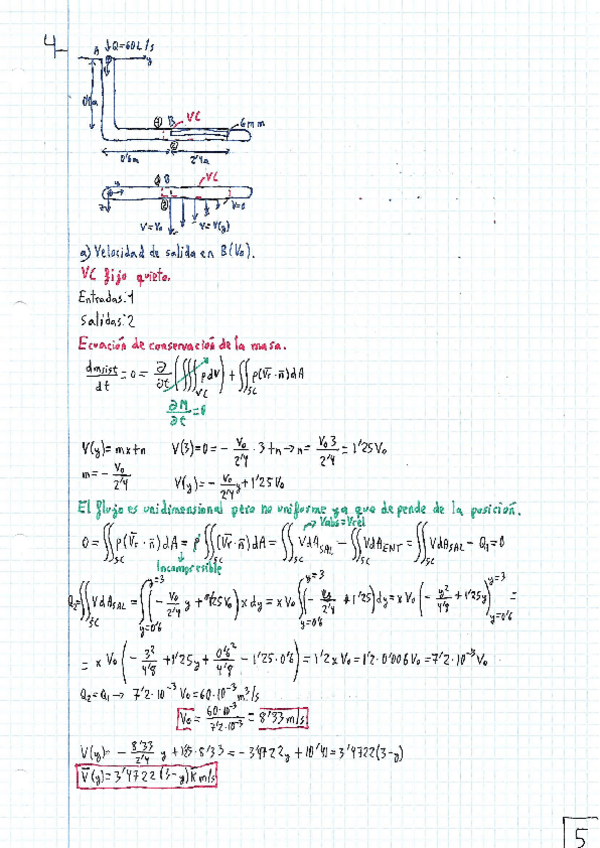 4-
A ↓Q=60L/s
y
0'6m
① B VC 6mm
②
0'6m 2'4m
① B VC
②
z V=V₀ V=V(y) V=0
a) Velocidad de salida en B(V₀).
VC fijo quieto.
Entradas: 1
Salidas: 2
Ecuación de conservación de la masa.
dmsist/dt = 0 = ∂/∂t (∭_VC ρdV) + ∬_SC ρ(V̄r·n̄)dA
∂M/∂t = 0
V(y)=mx+n V(3)=0=-V₀/2'4·3+n→n=V₀3/2'4=1'25V₀
m=-V₀/2'4 V(y)=-V₀/2'4 y+1'25V₀
El flujo es unidimensional pero no uniforme ya que depende de la posición.
→Vabs=Vrel
0=∬_SC ρ(V̄r·n̄)dA=ρ∬_SC (V̄r·n̄)dA=∬_SC VdA_SAL-∬_SC VdA_ENT=∬_SC VdA_SAL-Q₁=0
Incompresible
Q₂=∬_SC VdA_SAL=∫_{y=0'6}^{y=3}(-V₀/2'4 y+1'25V₀)x dy=xV₀∫_{y=0'6}^{y=3}(-y/2'4+1'25)dy=xV₀(-y²/4'8+1'25y)_{y=0'6}^{y=3}=
=xV₀(-3²/4'8+1'25y+0'6²/4'8-1'25·0'6)=1'2xV₀=1'2·0'006V₀=7'2·10⁻³V₀
Q₂=Q₁→7'2·10⁻³V₀=60·10⁻³m³/s
V₀=60·10⁻³/7'2·10⁻³=8'33m/s
V(y)=-8'33/2'4 y+1'25·8'33=-3'4722y+10'41=3'4722(3-y)
V̄(y)=3'4722(3-y)k̄ m/s
5